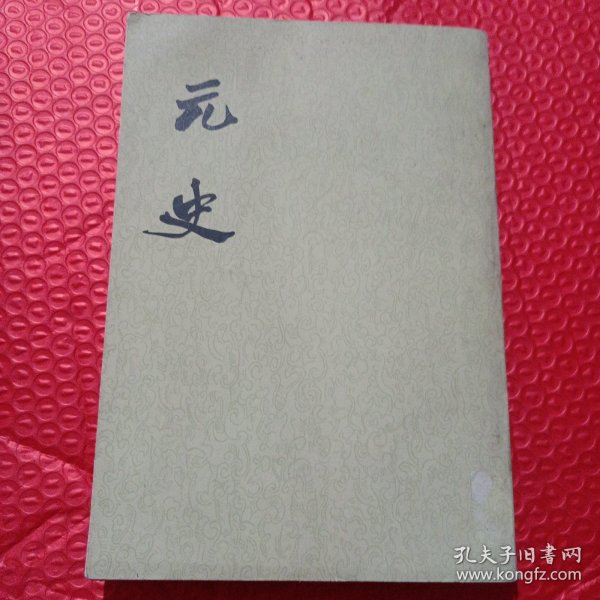 元史
孔夫子旧書网
www.kongfz.com